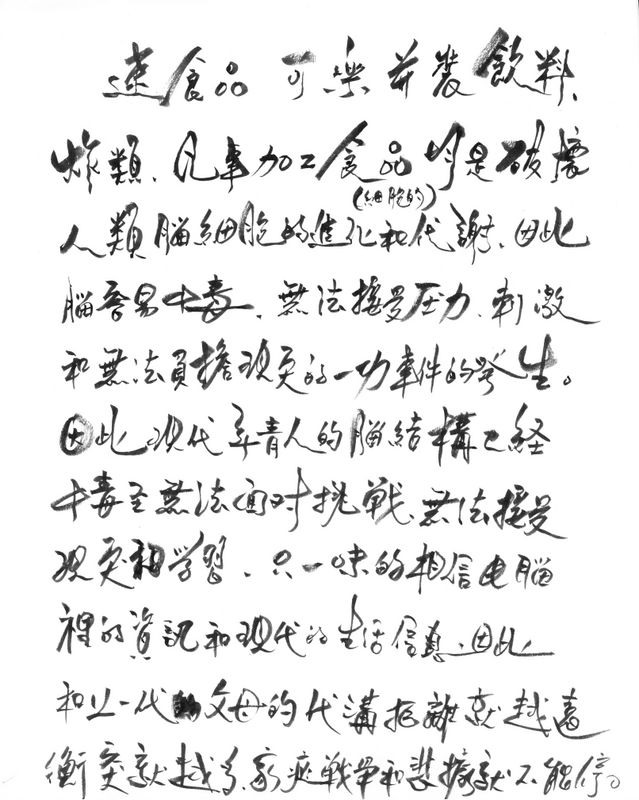 速食品 可樂 并裝飲料、
炸類、凡事加工食品均是破壞
(細胞的)
人類腦細胞的進化和代謝、因此
腦容易中毒、無法接受压力、刺激
和無法負擔現实的一切事件的發生。
因此現代年青人的腦結構已経
中毒至無法面对挑戦、無法接受
現実和学習、只一味的相信电腦
裡的資訊和現代的生活信息、因此
和上一代父母的代溝距離就越遠
衝突就越多、家庭戦争和悲攘就不能停。